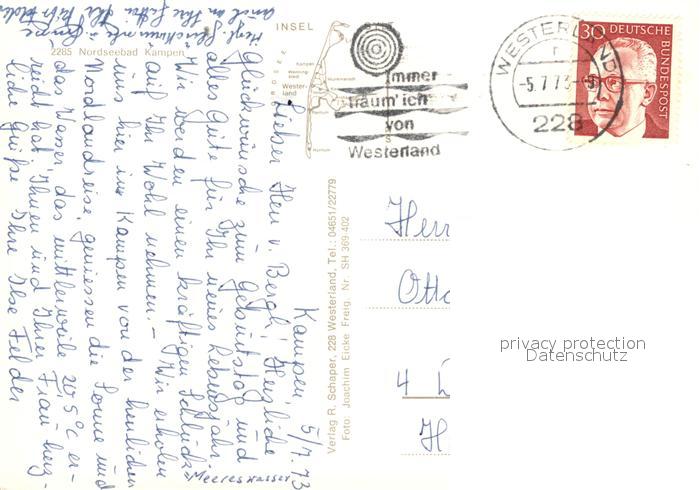 INSEL
2285 Nordseebad Kampen
Kampen
Wenning-
stedt
Wester-
land
Munkmarsch
Hörnum
Immer
träum' ich
von
Westerland
WESTERLAND
-5.7.73-
228
30 DEUTSCHE
BUNDESPOST
Verlag R. Schaper, 228 Westerland, Tel.: 04651/22779
Foto: Joachim Eicke Freig. Nr. SH 369-402
Kampen, 5/7.73
Lieber Herr v. Bergh! Herzliche
Glückwünsche zum Geburtstag und
alles Gute für Ihr neues Lebensjahr.
Wir werden einen kräftigen Schluck
auf Ihr Wohl nehmen. – Wir erholen
uns hier in Kampen von der herrlichen
Nordlandreise, geniessen die Sonne und
das Wasser, das mittlerweile 20,5°C er-
reicht hat. Ihnen und Ihrer Frau herz-
liche Grüße Ihre Ilse Felder
=Meereswasser
auch an Ihre
Herzl. Glückwünsche + Grüsse
Herr
Otto
4
H
privacy protection
Datenschutz